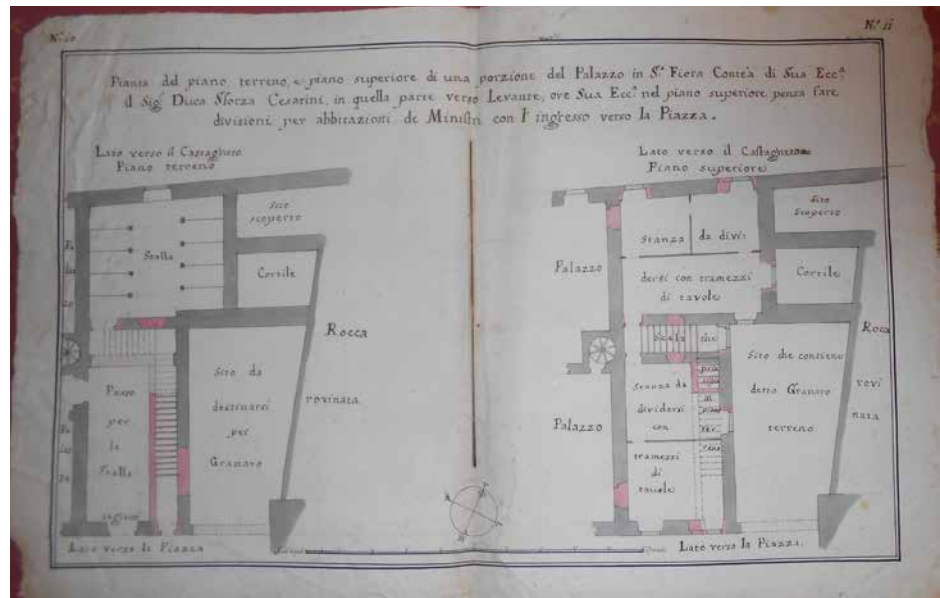 N.° 10
N.° 11
Pianta del piano terreno, e piano superiore di una porzione del Palazzo in S.ª Fiora Contèa di Sua Ecc.ª
il Sig.r Duca Sforza Cesarini, in quella parte verso Levante, ove Sua Ecc.ª nel piano superiore pensa fare
divisioni per abbitazioni de Ministri con l'ingresso verso la Piazza.
Lato verso il Castagneto
Piano terreno
Sito
scoperto
Stalla
Cortile
Pa
laz
zo
Rocca
rovinata
Passo
per
la
Stalla
Sito da
destinarsi
per
Granaro
Pa
laz
zo
Lato verso la Piazza
Lato verso il Castagneto
Piano superiore
Sito
Scoperto
Stanza da divi
dersi con tramezzi
di tavole
Palazzo
Cortile
Scala che
al
Stanza da
dividersi
con
tramezzi
di
tavole
Sito che contiene
detto Granaro
terreno
Roca
rovi
nata
Palazzo
Lato verso la Piazza.